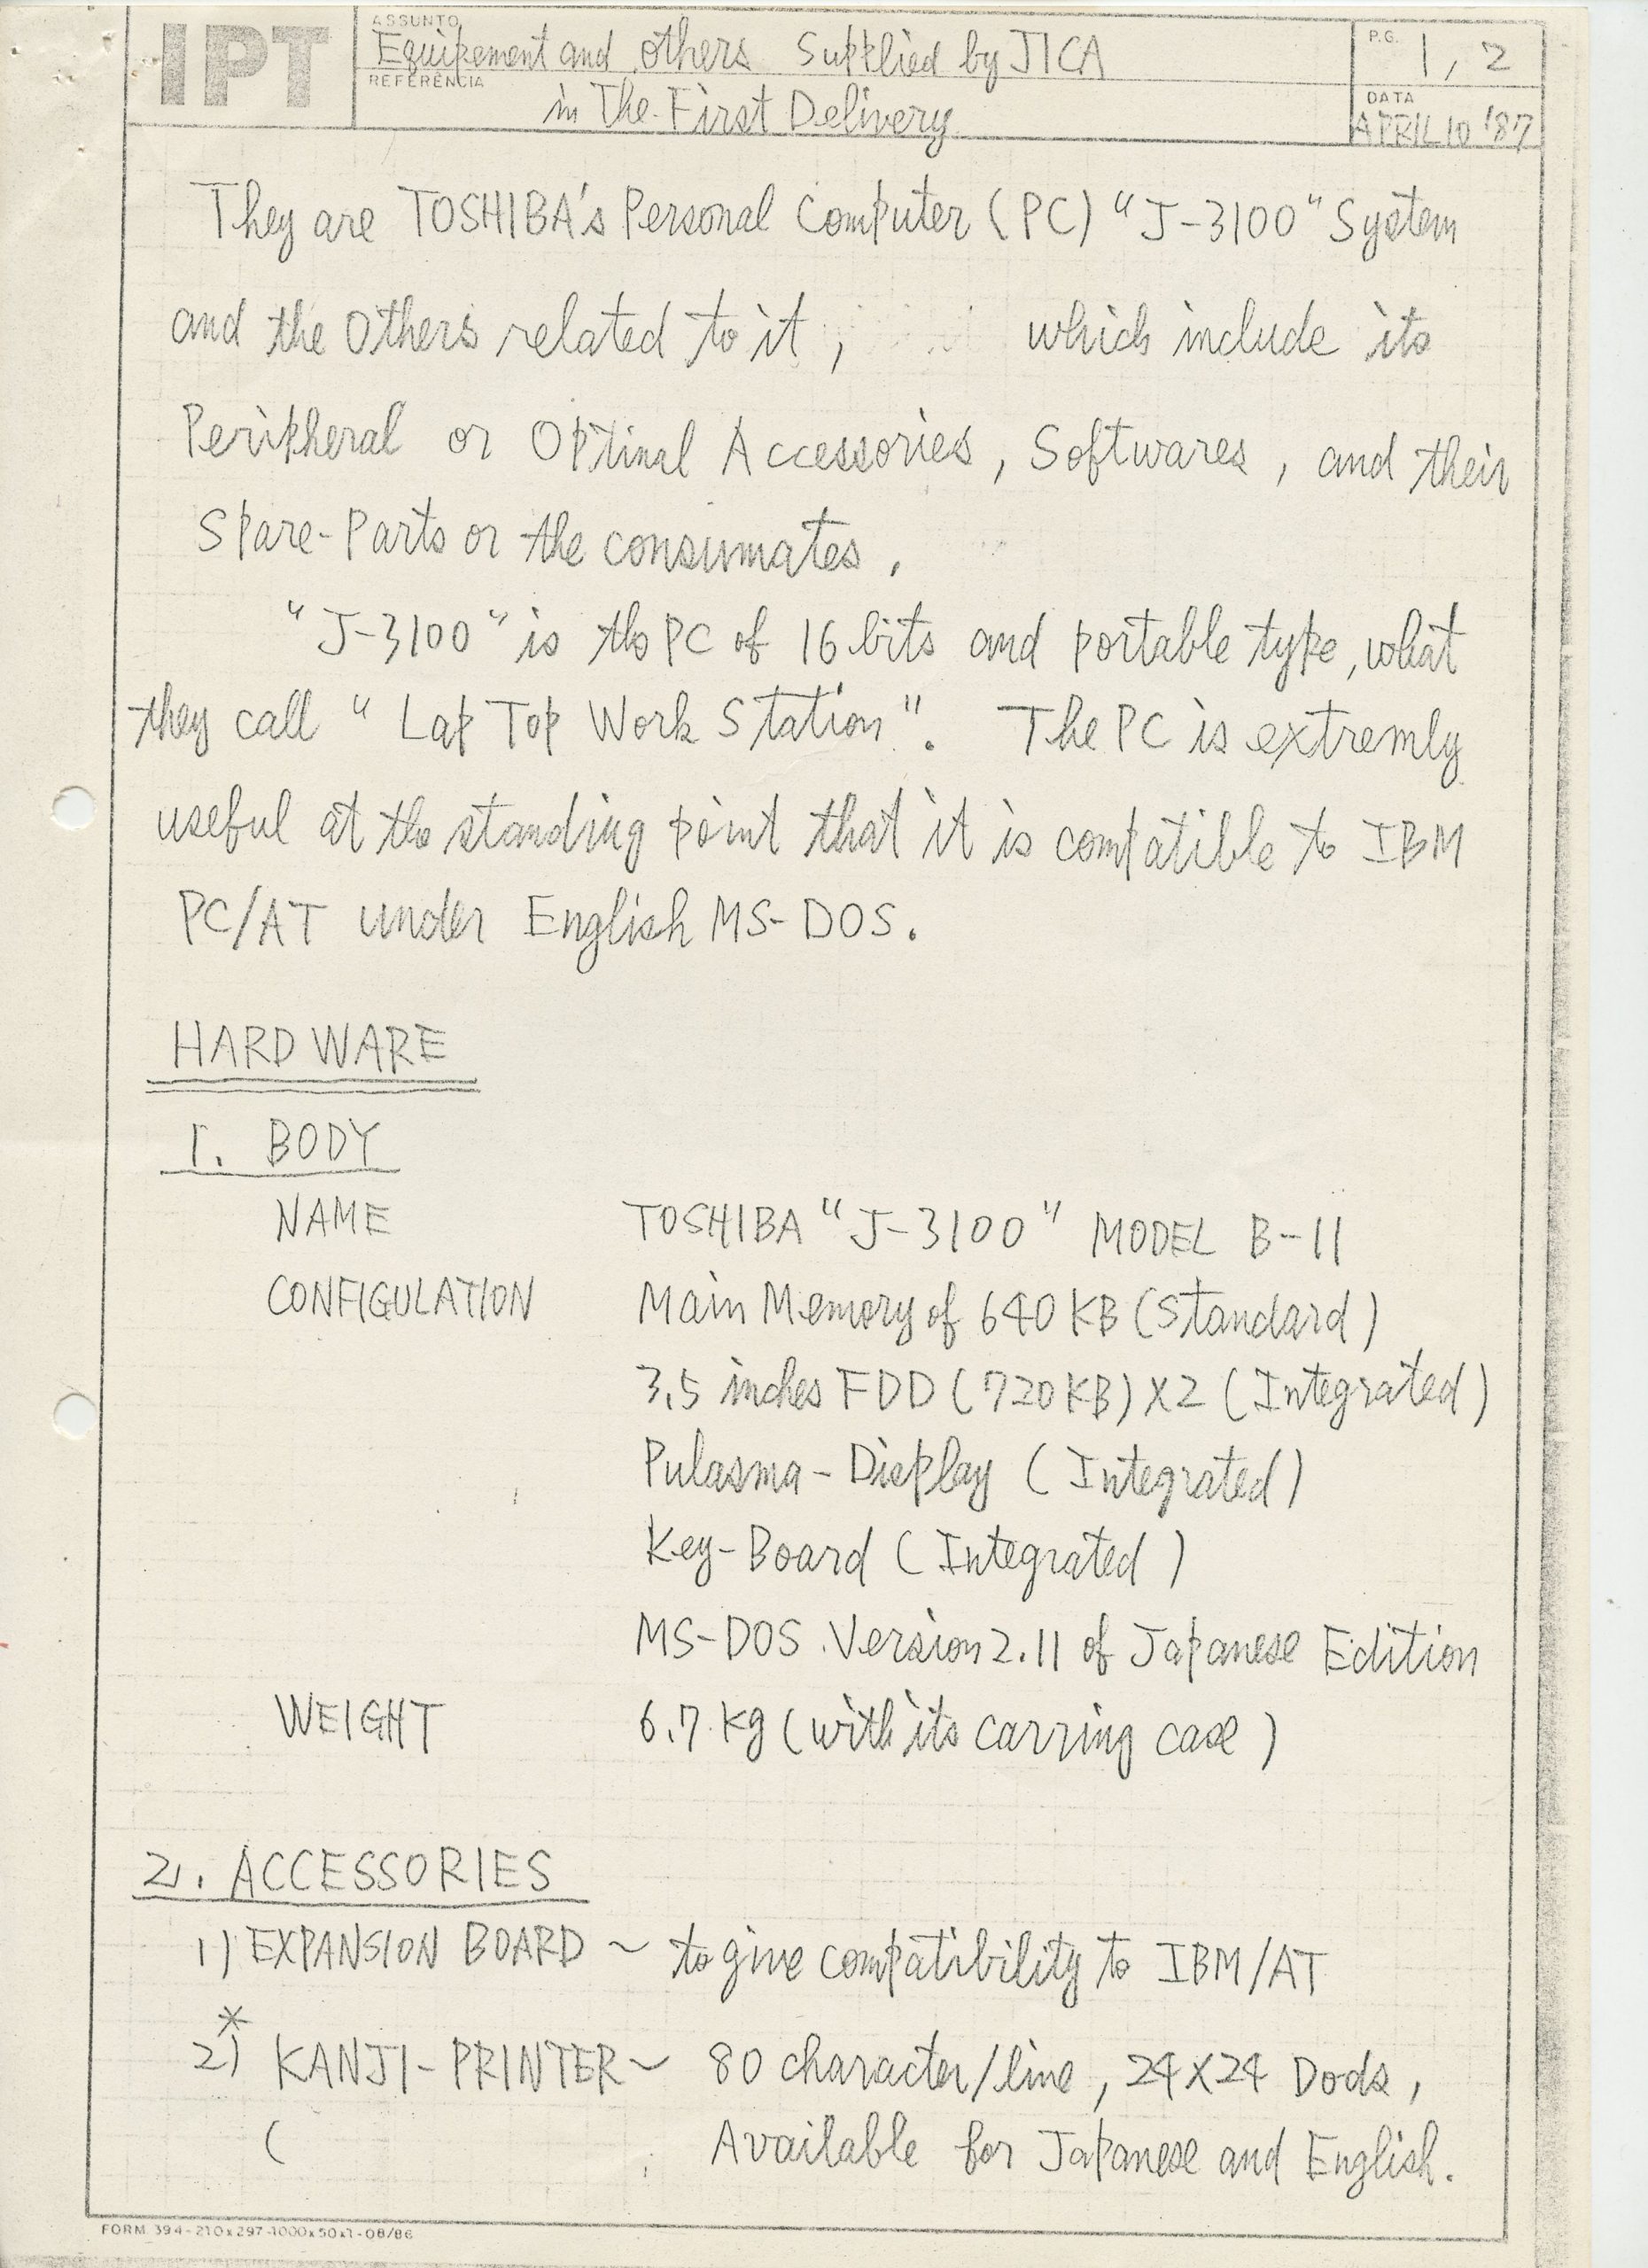 IPT
ASSUNTO
Equipement and others Supplied by JICA
REFERÊNCIA
in The First Delivery
P.G. 1, 2
DATA
APRIL 10 '87
They are TOSHIBA's Personal Computer (PC) "J-3100" System
and the Others related to it, which include its
Peripheral or Optinal Accessories, Softwares, and their
Spare-Parts or the consumates.
"J-3100" is the PC of 16 bits and portable type, what
they call "Lap Top Work Station". The PC is extremly
useful at the standing point that it is compatible to IBM
PC/AT under English MS-DOS.
HARD WARE
1. BODY
NAME TOSHIBA "J-3100" MODEL B-11
CONFIGULATION Main Memory of 640 KB (Standard)
3.5 inches FDD (720KB) X2 (Integrated)
Pulasma-Display (Integrated)
Key-Board (Integrated)
MS-DOS Version 2.11 of Japanese Edition
WEIGHT 6.7 kg (with its carring case)
2. ACCESSORIES
1) EXPANSION BOARD ~ to give compatibility to IBM/AT
*
2) KANJI-PRINTER ~ 80 character/line, 24X24 Dods,
( Available for Japanese and English.
FORM 394-210x297-1000x50x1-08/86